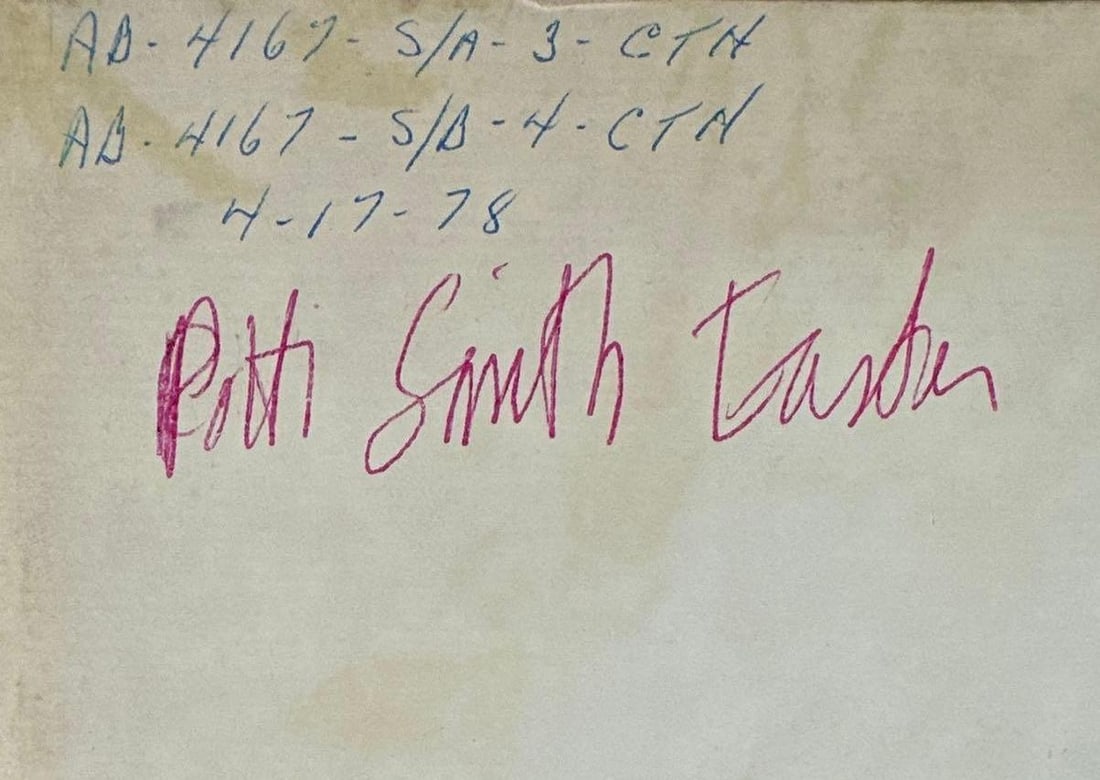 AB- 4167- S/A- 3- CTH
AB- 4167- S/B- 4- CTH
4-17-78
Patti Smith Easter